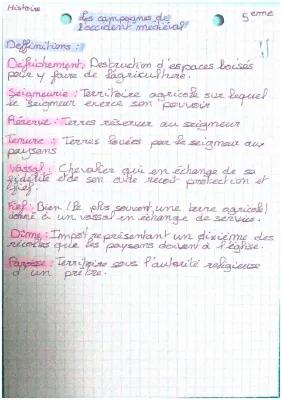 Histoire
Les campagnes de
l'occident médiéval
5 eme
Deffinitions :
Défrichement : Destruction d'espaces boisés
pour y faire de l'agriculture.
Seigneurie : Territoire agricole sur lequel
le seigneur exerce son pouvoir
Réserve : Terres réservées au seigneur
Tenure : Terres louées par le seigneur aux
paysans
Vassal : Chevalier qui en échange de sa
fidélité et de son aide reçoit protection et
fief.
Fief : Bien (le plus souvent une terre agricole)
donné à un vassal en échange de service.
Dîme : Impôt représentant un dixième des
récoltes que les paysans doivent à l'église.
Paroisse : Territoire sous l'autorité religieuse
d'un prêtre.